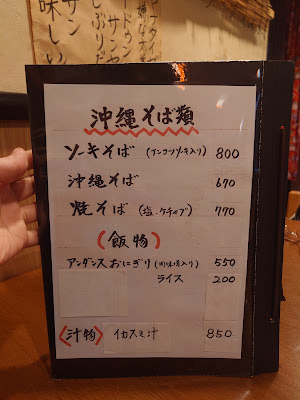 味しい
サン
沖縄そば類
ソーキそば (ナンコツソーキ入り) 800
沖縄そば 670
焼そば (塩、ケチャップ) 770
(飯物)
アンダンスおにぎり (肉味噌入り) 550
ライス 200
〈汁物〉 イカスミ汁 850